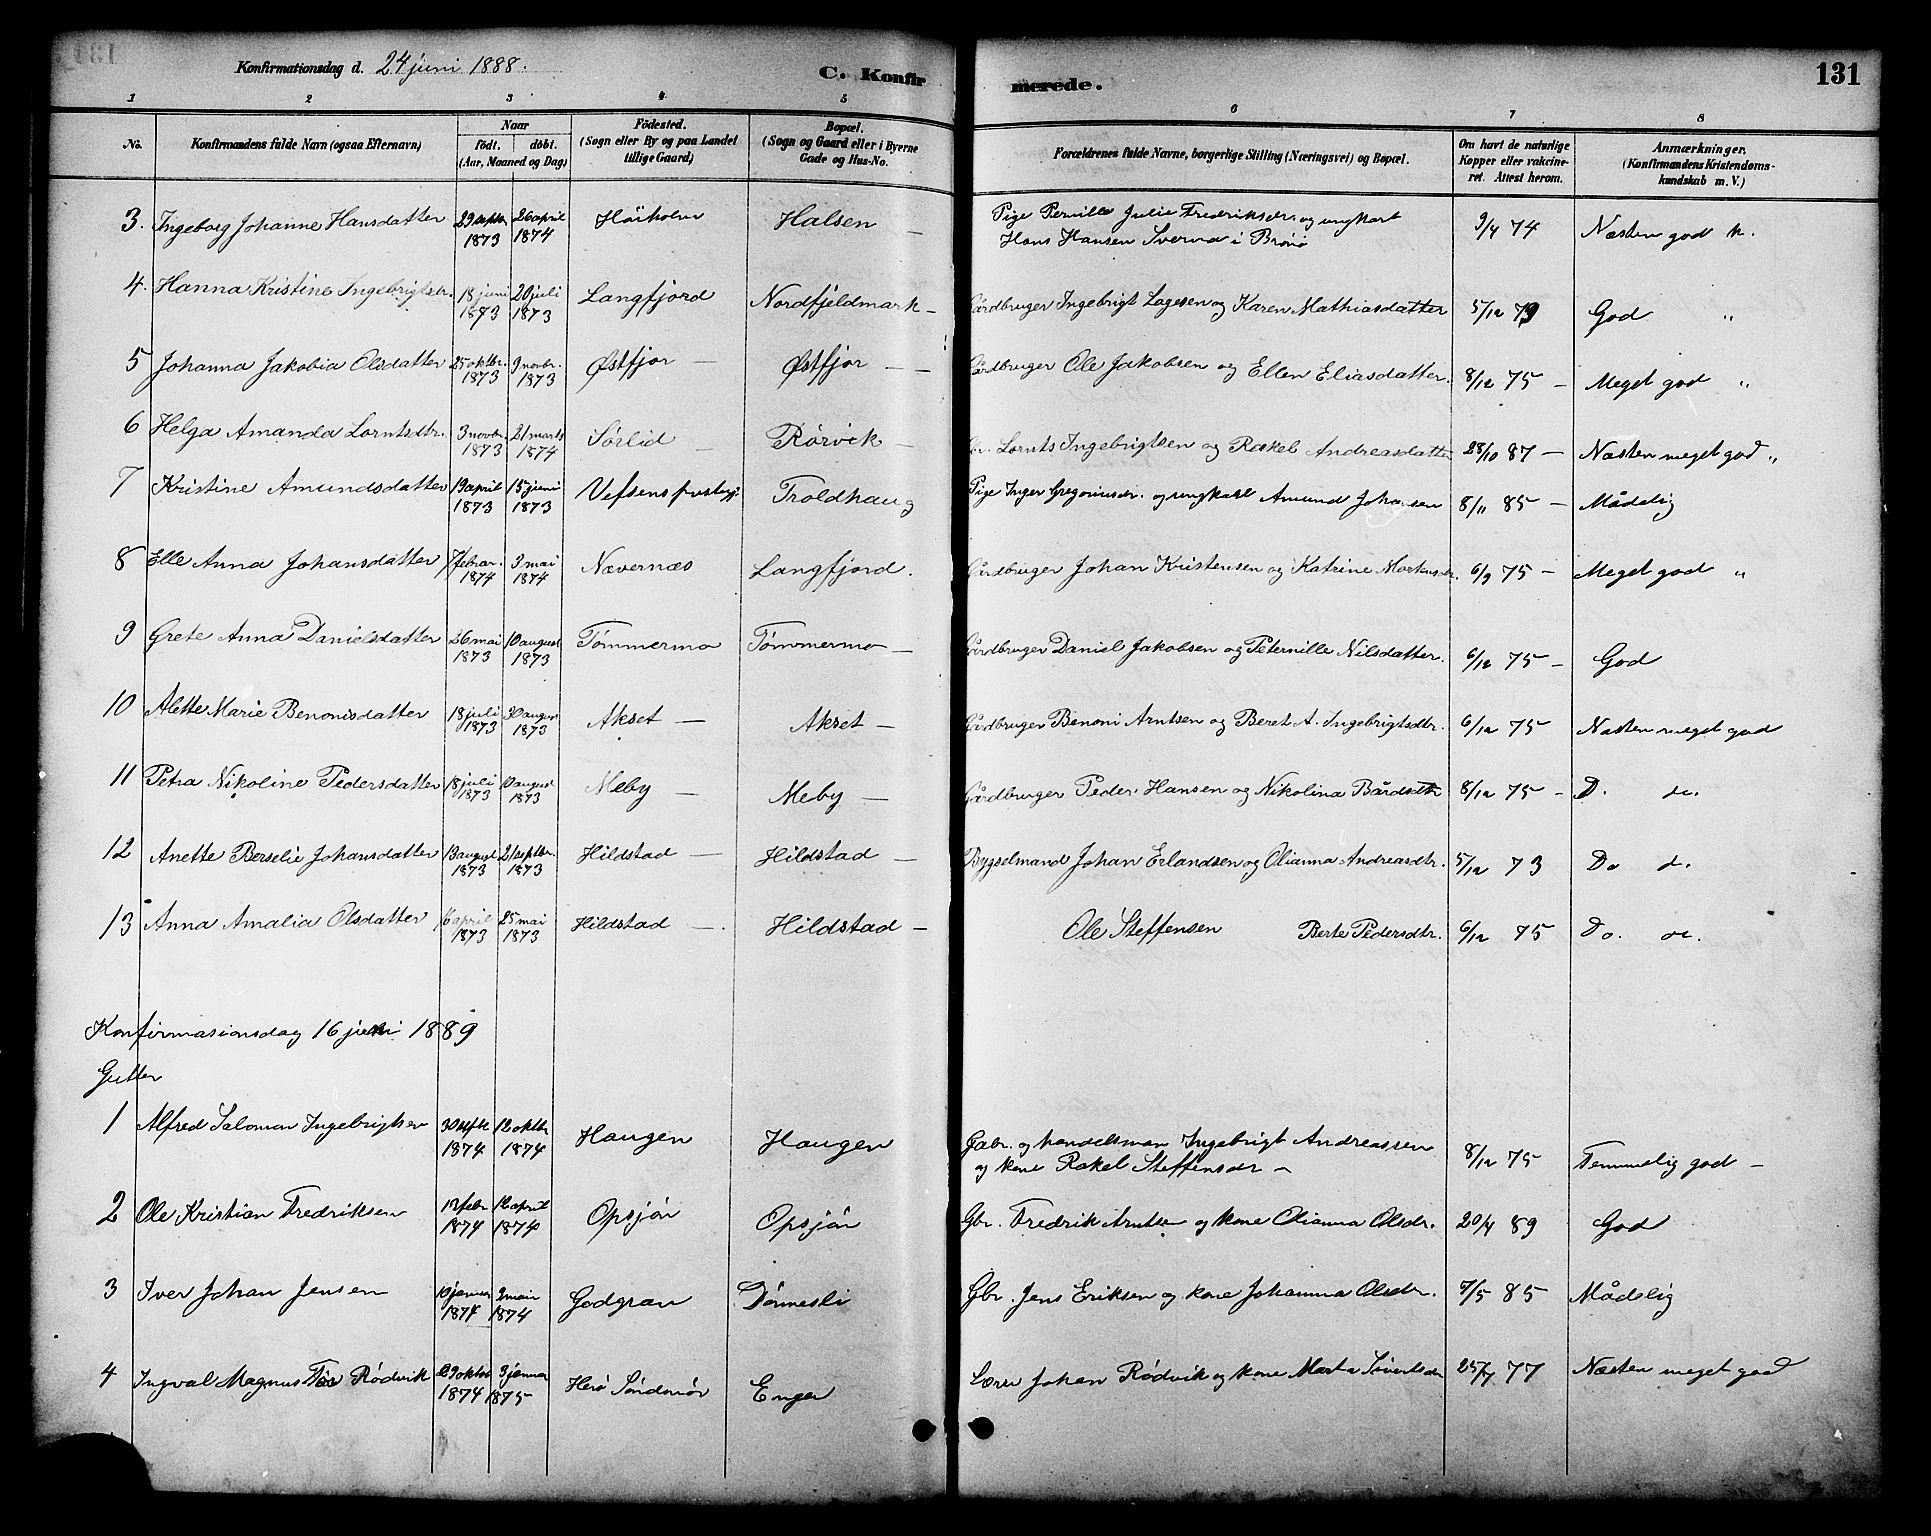 Konfirmationsdag d. 24 juni 1888.
C. Konfirmerede.
131
1 2 3 4 5 6 7 8
No. Konfirmandens fulde Navn (ogsaa Efternavn) Naar født. døbt. (Aar, Maaned og Dag) Födested. (Sogn eller By og paa Landet tillige Gaard) Bopæl. (Sogn og Gaard eller i Byerne Gade og Hus-No. Forældrenes fulde Navne, borgerlige Stilling (Næringsvei) og Bopæl. Om havt de naturlige Kopper eller vakcineret. Attest herom. Anmærkninger. (Konfirmandens Kristendomskundskab m. V.)
3. Ingeborg Johanne Hansdatter 29 septbr 1873 26 april 1874 Höiholm Halsen — Pige Pernille Julie Fredriksdr. og ungkarl
Hans Hansen i Brønø 9/4 74 Næsten god k.
4. Hanna Kristine Ingebrigtsdr. 18 juni 1873 20 juli 1873 Langfjord Nordfjeldmark — Gårdbruger Ingebrigt Lagesen og Karen Mathiasdatter 5/12 79 God "
5 Johanna Jakobia Olsdatter 25 oktbr. 1873 9 novbr. 1873 Østfjor — Østfjor — — Gårdbruger Ole Jakobsen og Ellen Eliasdatter. 8/12 75 — Meget god "
6 Helga Amanda Lorntsdtr. 3 novbr. 1873 21 marts 1874 Sørlid — Rørvik — Gbr. Lornts Ingebrigtsen og Rakel Andreasdatter 28/10 87 — Næsten meget god "
7 Kristine Amundsdatter 19 april 1873 15 juni 1873 Vefsens Troldhaug Pige Inger Gregoriusdr. og ungkarl Amund Johansen 8/11 85 — Mådelig
8 Elle Anna Johansdatter 7 febrar. 1874 3 mai 1874 Nævernæs Langfjord. Gårdbruger Johan Kristensen og Katrine 6/9 75 — Meget god "
9 Grete Anna Danielsdatter 26 mai 1873 10 august 1873 Tømmermo Tømmermo — Gårdbruger Daniel Jakobsen og Peternille Nilsdatter. 6/12 75 — God
10 Alette Marie Benonisdatter 18 juli 1873 30 august 1873 Akset — Akset — Gårdbruger Benoni Arntsen og Beret A. Ingebrigtsdtr. 6/12 75 Næsten meget god
11 Petra Nikoline Pedersdatter 18 juli 1873 10 august 1873 Meby — Meby — Gårdbruger Peder Hansen og Nikolina Bårdsdtr 8/12 75 — D. do.
12 Anette Berselie Johansdatter 13 august 1873 21 septbr. 1873 Hildstad — Hildstad — Bygselmand Johan Erlandsen og Olianna Andreasdtr. 5/12 73 Do d.
13 Anna Amalia Olsdatter 16 april 1873 25 mai 1873 Hildstad — Hildstad — Ole Steffensen Berte Pedersdtr. 6/12 75 Do. do.
Konfirmasionsdag 16 juni 1889
Gutter
1 Alfred Salomon Ingebrigtsen 30 septbr 1874 12 oktbr 1874 Haugen Haugen Gabr. og handelsman Ingebrigt Andreassen
og kone Rakel Steffensdr — 8/12 75 Temmelig god —
2 Ole Kristian Fredriksen 13 febr 1874 12 april 1874 Opsjøn Opsjøn Gbr. Fredrik Arntsen og kone Olianna Olsdr. 20/4 89 God
3 Iver Johan Jensen 10 januar 1874 3 mai 1874 Godgran Dønnesli Gbr. Jens Eriksen og kone Johanna Olsdr. 7/5 85 Mådelig
4 Ingval Magnus Rødvik 29 oktbr 1874 3 januar 1875 Herø Søndmør Enger Lærer Johan Rødvik og kone Marta Sivertsdr 25/7 77 Næsten meget god